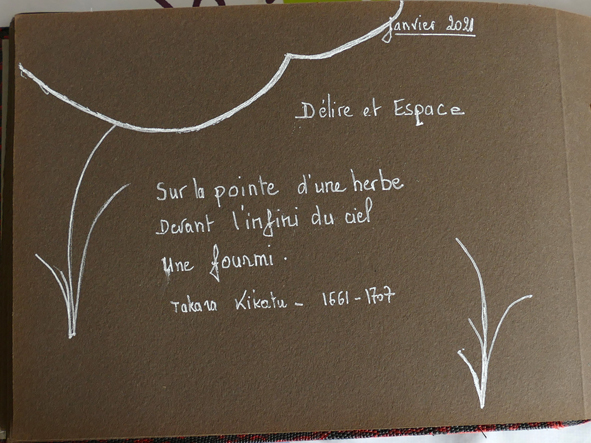 Janvier 2021
Délire et Espace
Sur la pointe d'une herbe
Devant l'infini du ciel
Une fourmi.
Takara Kikatu - 1661-1707